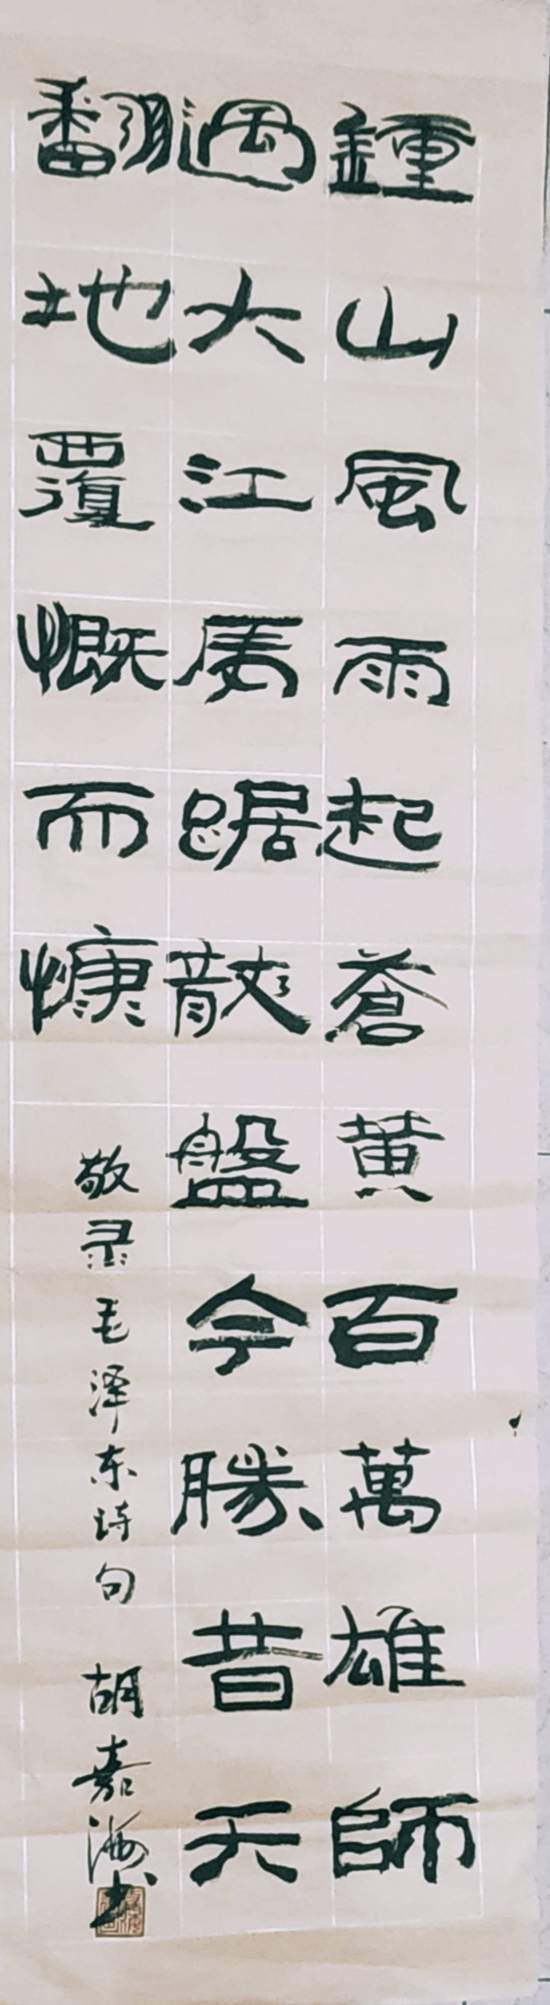 鍾山風雨起蒼黄百萬雄師
過大江虎踞龍盤今勝昔天
翻地覆慨而慷
敬录毛泽东诗句 胡嘉海书